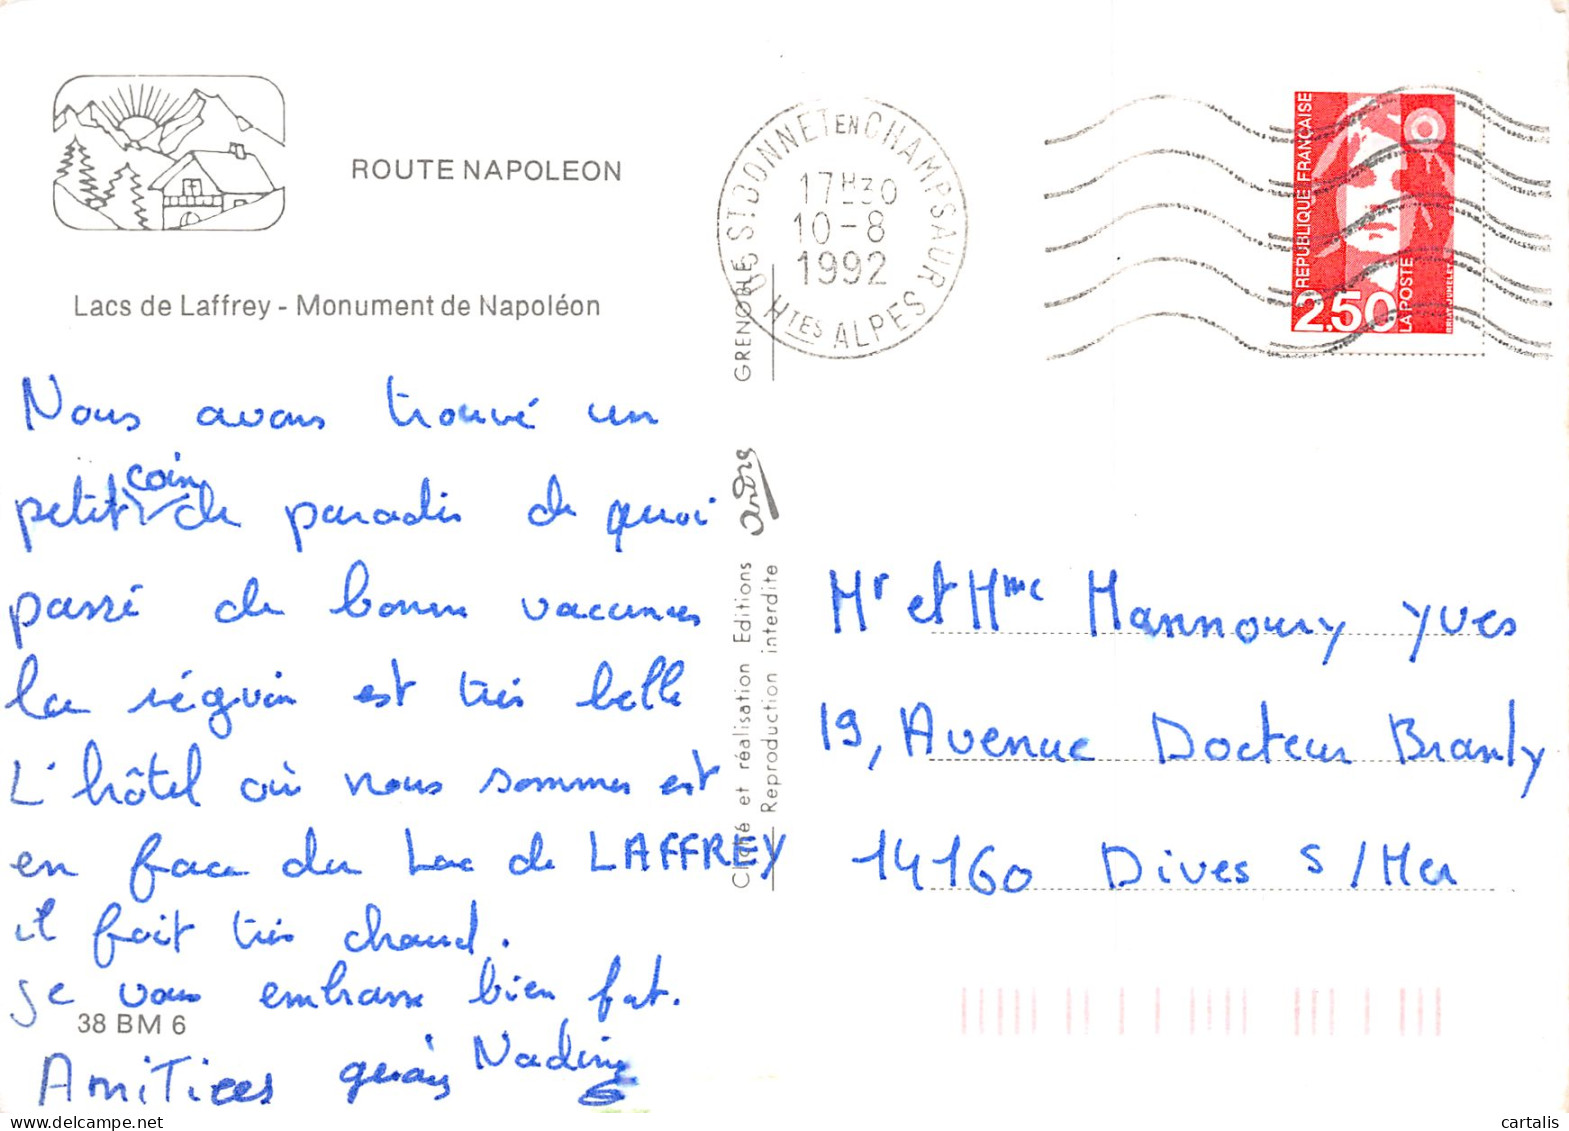 ROUTE NAPOLEON
Lacs de Laffrey - Monument de Napoléon
Nous avons trouvé un
petit coin de paradis de quoi
passé de bonnes vacances
la région est très belle
L'hôtel où nous sommes est
en face du Lac de LAFFREY
il fait très chaud.
Je vous embrasse bien fort.
38 BM 6
Amitiés Nadine
GRENOBLE
André
Cliché et réalisation Editions
Reproduction interdite
05 ST BONNET EN CHAMPSAUR
17H30
10-8
1992
HTES ALPES
REPUBLIQUE FRANÇAISE
2.50
LA POSTE
BRIAT JUMELET
Mr et Mme Mannoury Yves
19, Avenue Docteur Branly
14160 Dives S/Mer
cartalis